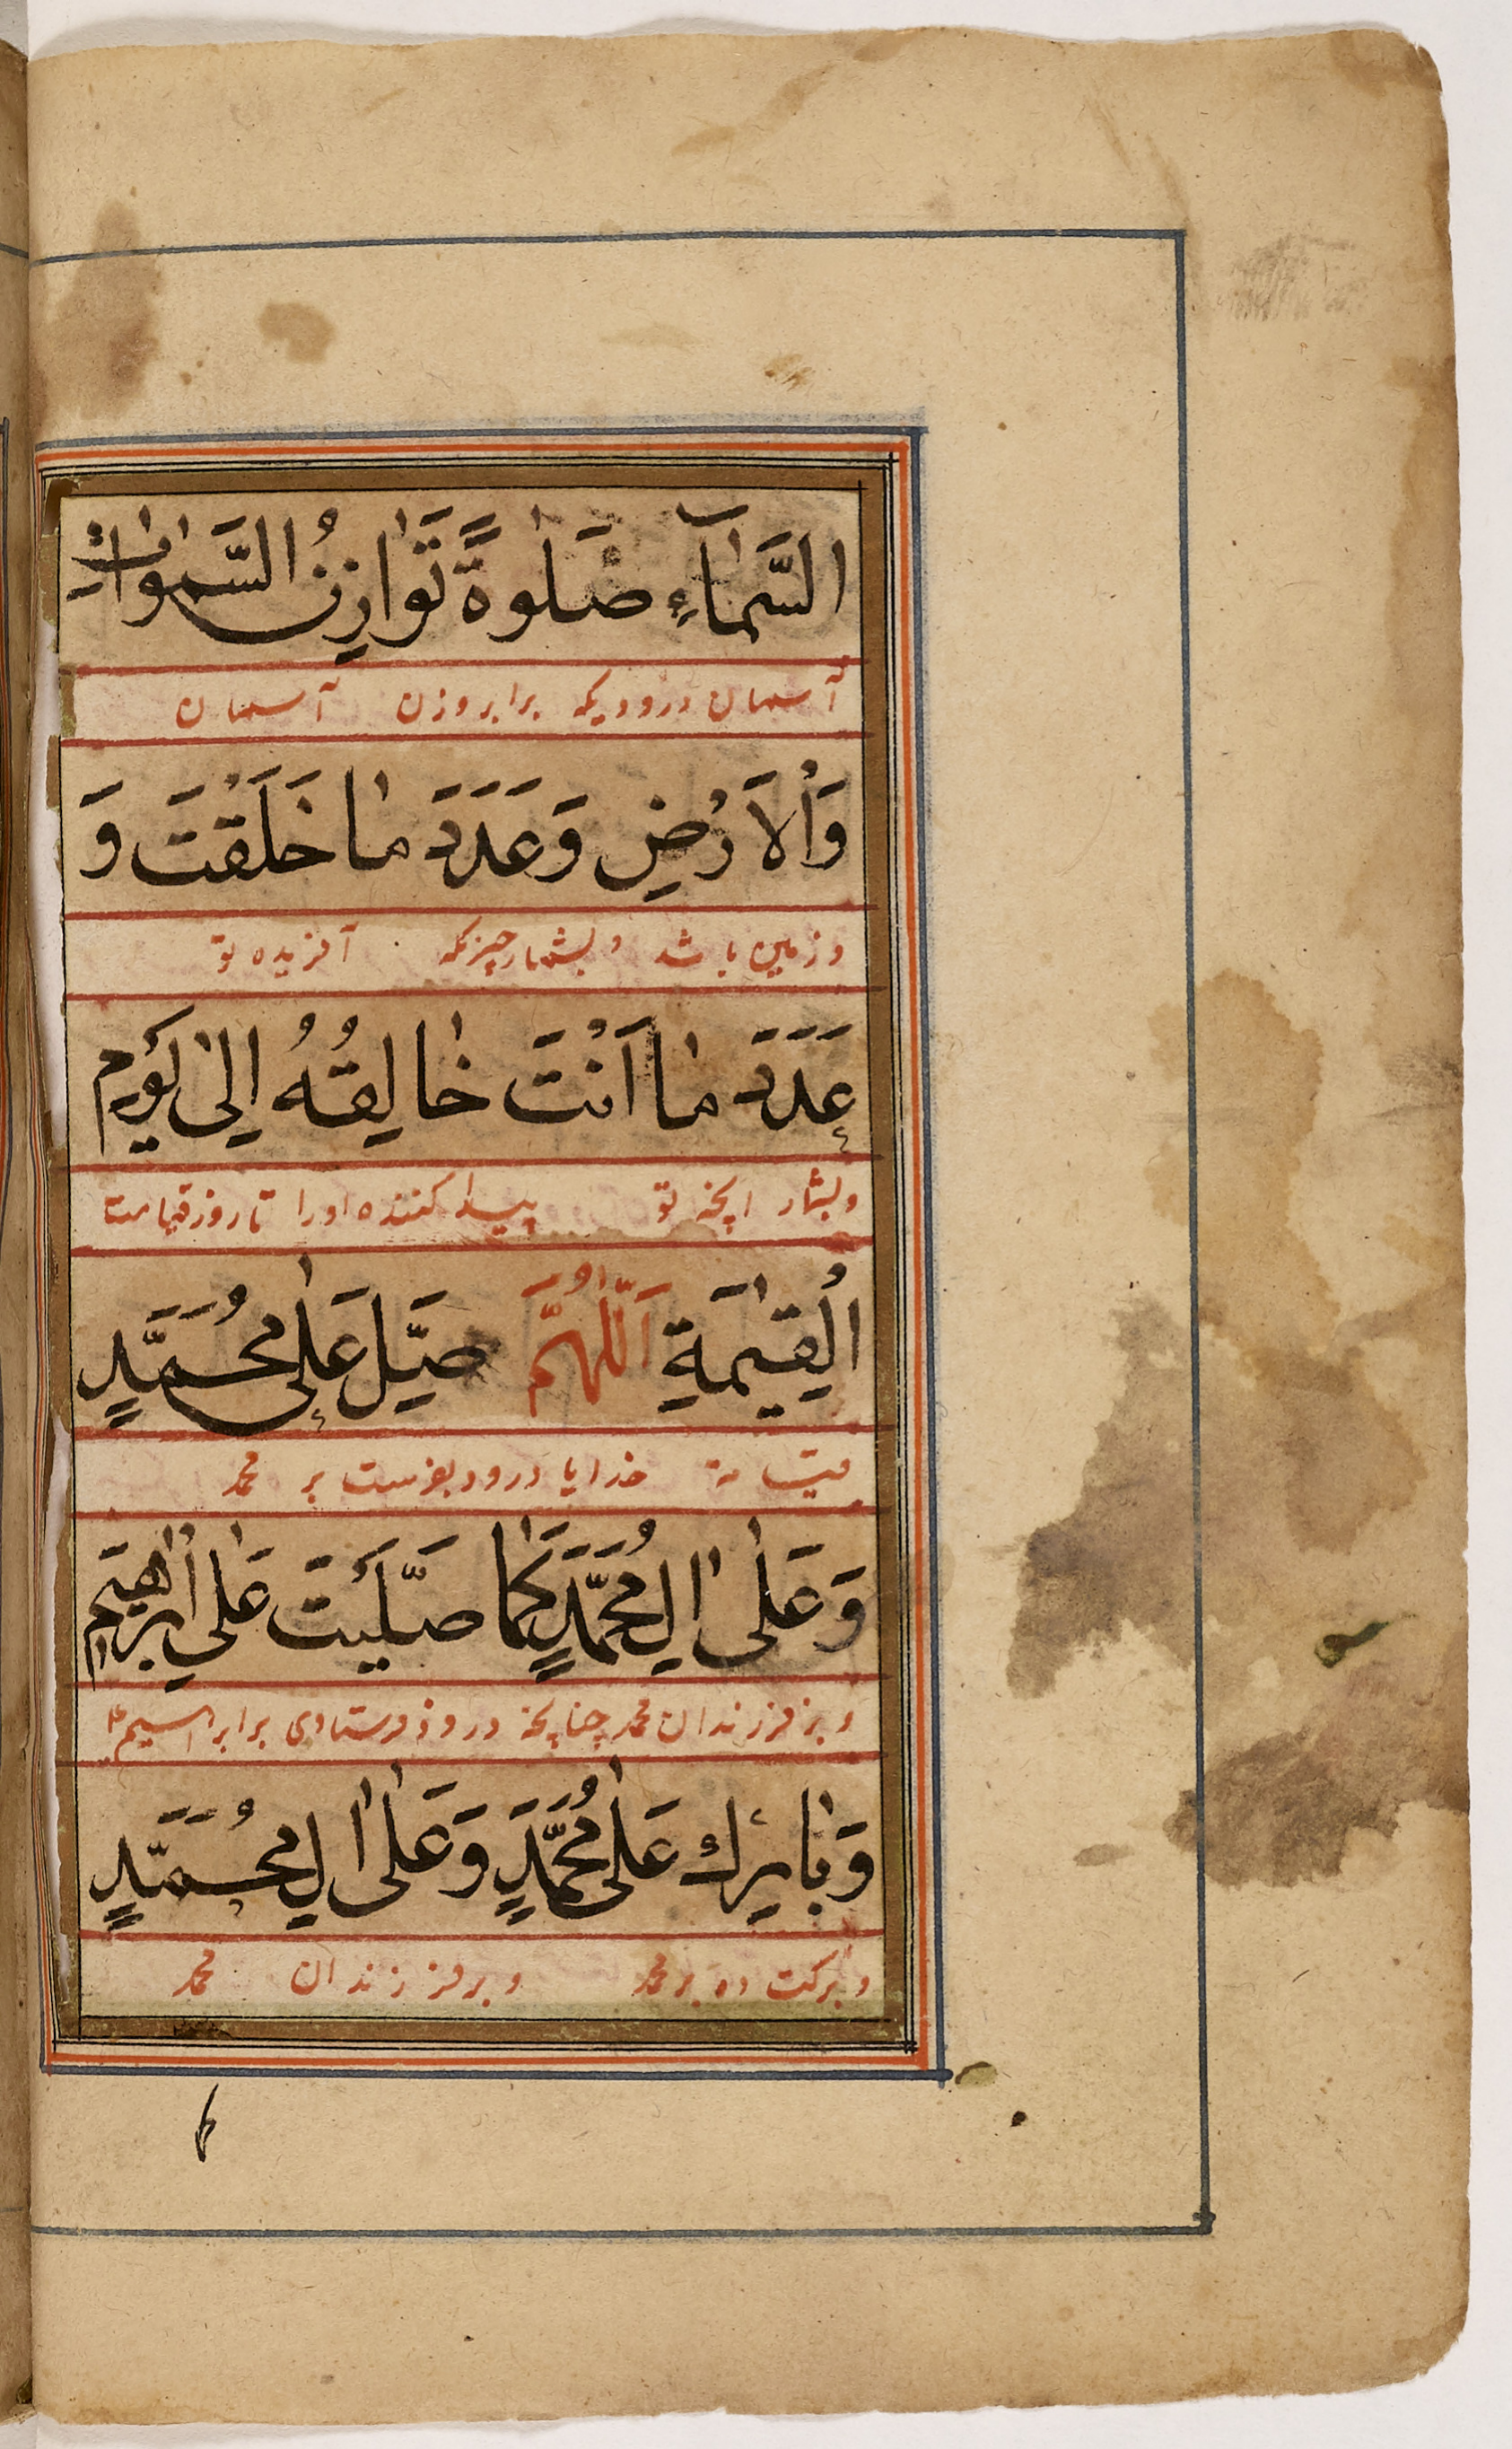 السَّمٰآءِ صَلٰوةً تَوٰازِنُ السَّمٰوٰاتِ
آسمان درودیکه برابر وزن آسمان
وَاْلاَرْضِ وَعَدَدَ مٰا خَلَقْتَ وَ
و زمین باشد و بشمار چیزیکه آفریده تو
عَدَدَ مٰا اَنْتَ خٰالِقُهُ اِلىٰ يَوْمِ
و بشمار انچه تو پیدا کننده اورا تا روز قیامت
الْقِيٰمَةِ اَللّٰهُمَّ صَلِّ عَلٰى مُحَمَّدٍ
قیامة خدایا درود بفرست بر محمد
وَعَلٰى اٰلِ مُحَمَّدٍ كَمٰا صَلَّيْتَ عَلٰى اِبْرٰاهِيمَ
و بر فرزندان محمد چنانچه درود فرستادی بر ابراهیم
وَبٰارِكْ عَلٰى مُحَمَّدٍ وَعَلٰى اٰلِ مُحَمَّدٍ
و برکت ده بر محمد و بر فرزندان محمد